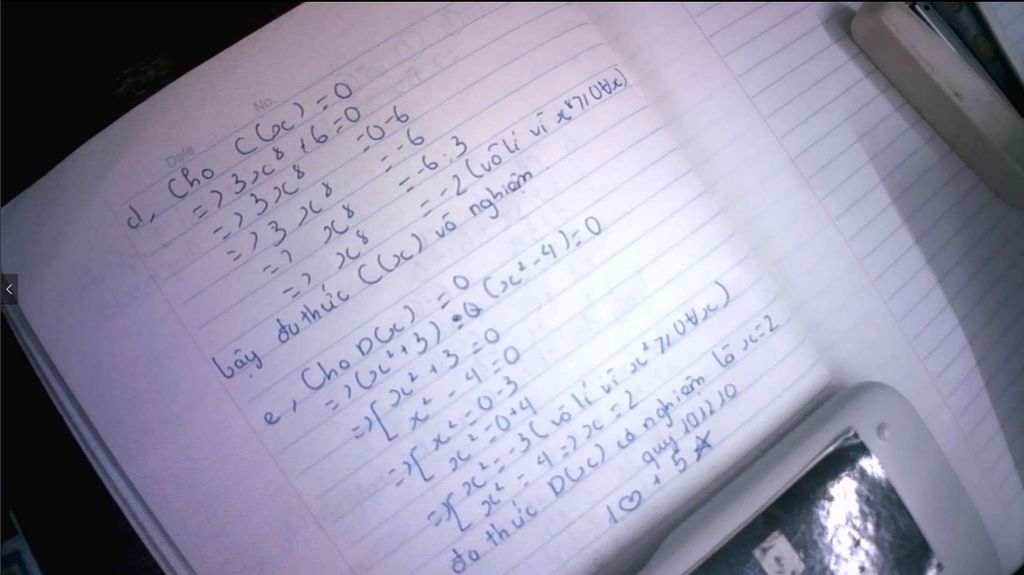 No.
Date
d, Cho C(x) = 0
=> 3x⁸ + 6 = 0
=> 3x⁸ = 0-6
=> 3x⁸ = -6
=> x⁸ = -6:3
=> x⁸ = -2 (vô lí vì x⁸ ≥ 0 ∀x)
Vậy đa thức C(x) vô nghiệm
e, Cho D(x) = 0
=> (x²+3) (x²-4) = 0
=> [ x² + 3 = 0
x² - 4 = 0
=> [ x² = 0-3
x² = 0+4
=> [ x² = -3 (vô lí vì x² ≥ 0 ∀x)
x² = 4 => x = 2
đa thức D(x) có nghiệm là x=2
1♡ + 5☆